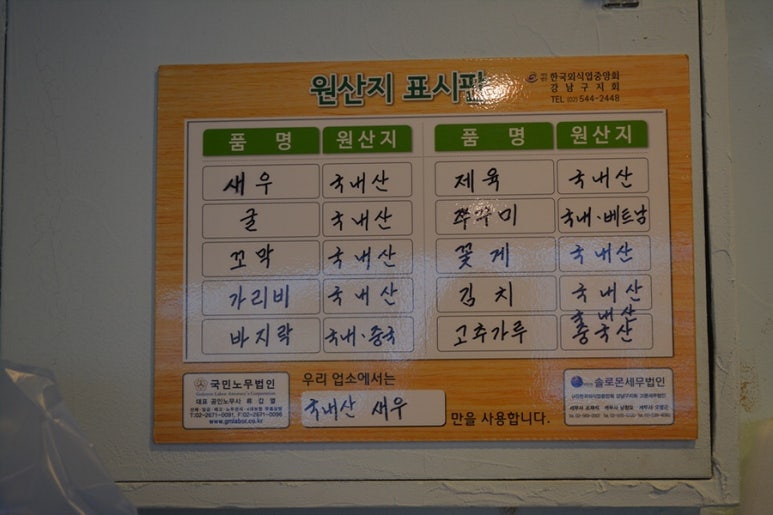 원산지 표시판
한국외식업중앙회
강남구지회
TEL (02) 544-2448
품 명 원산지
새우 국내산
굴 국내산
꼬막 국내산
가리비 국내산
바지락 국내·중국
품 명 원산지
제육 국내산
쭈꾸미 국내·베트남
꽃게 국내산
김치 국내산
고추가루 국내산
중국산
국민노무법인
대표 공인노무사
T:02-2671-0091, F:02-2671-0096
www.gmlabor.co.kr
우리 업소에서는
국내산 새우
만을 사용합니다.
솔로몬세무법인